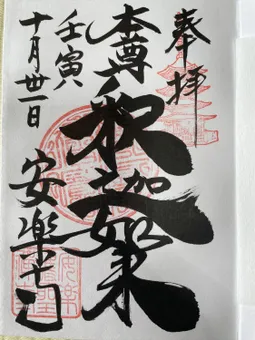 奉拝
本尊
釈迦如来
壬寅
十月卅一日
安楽寺